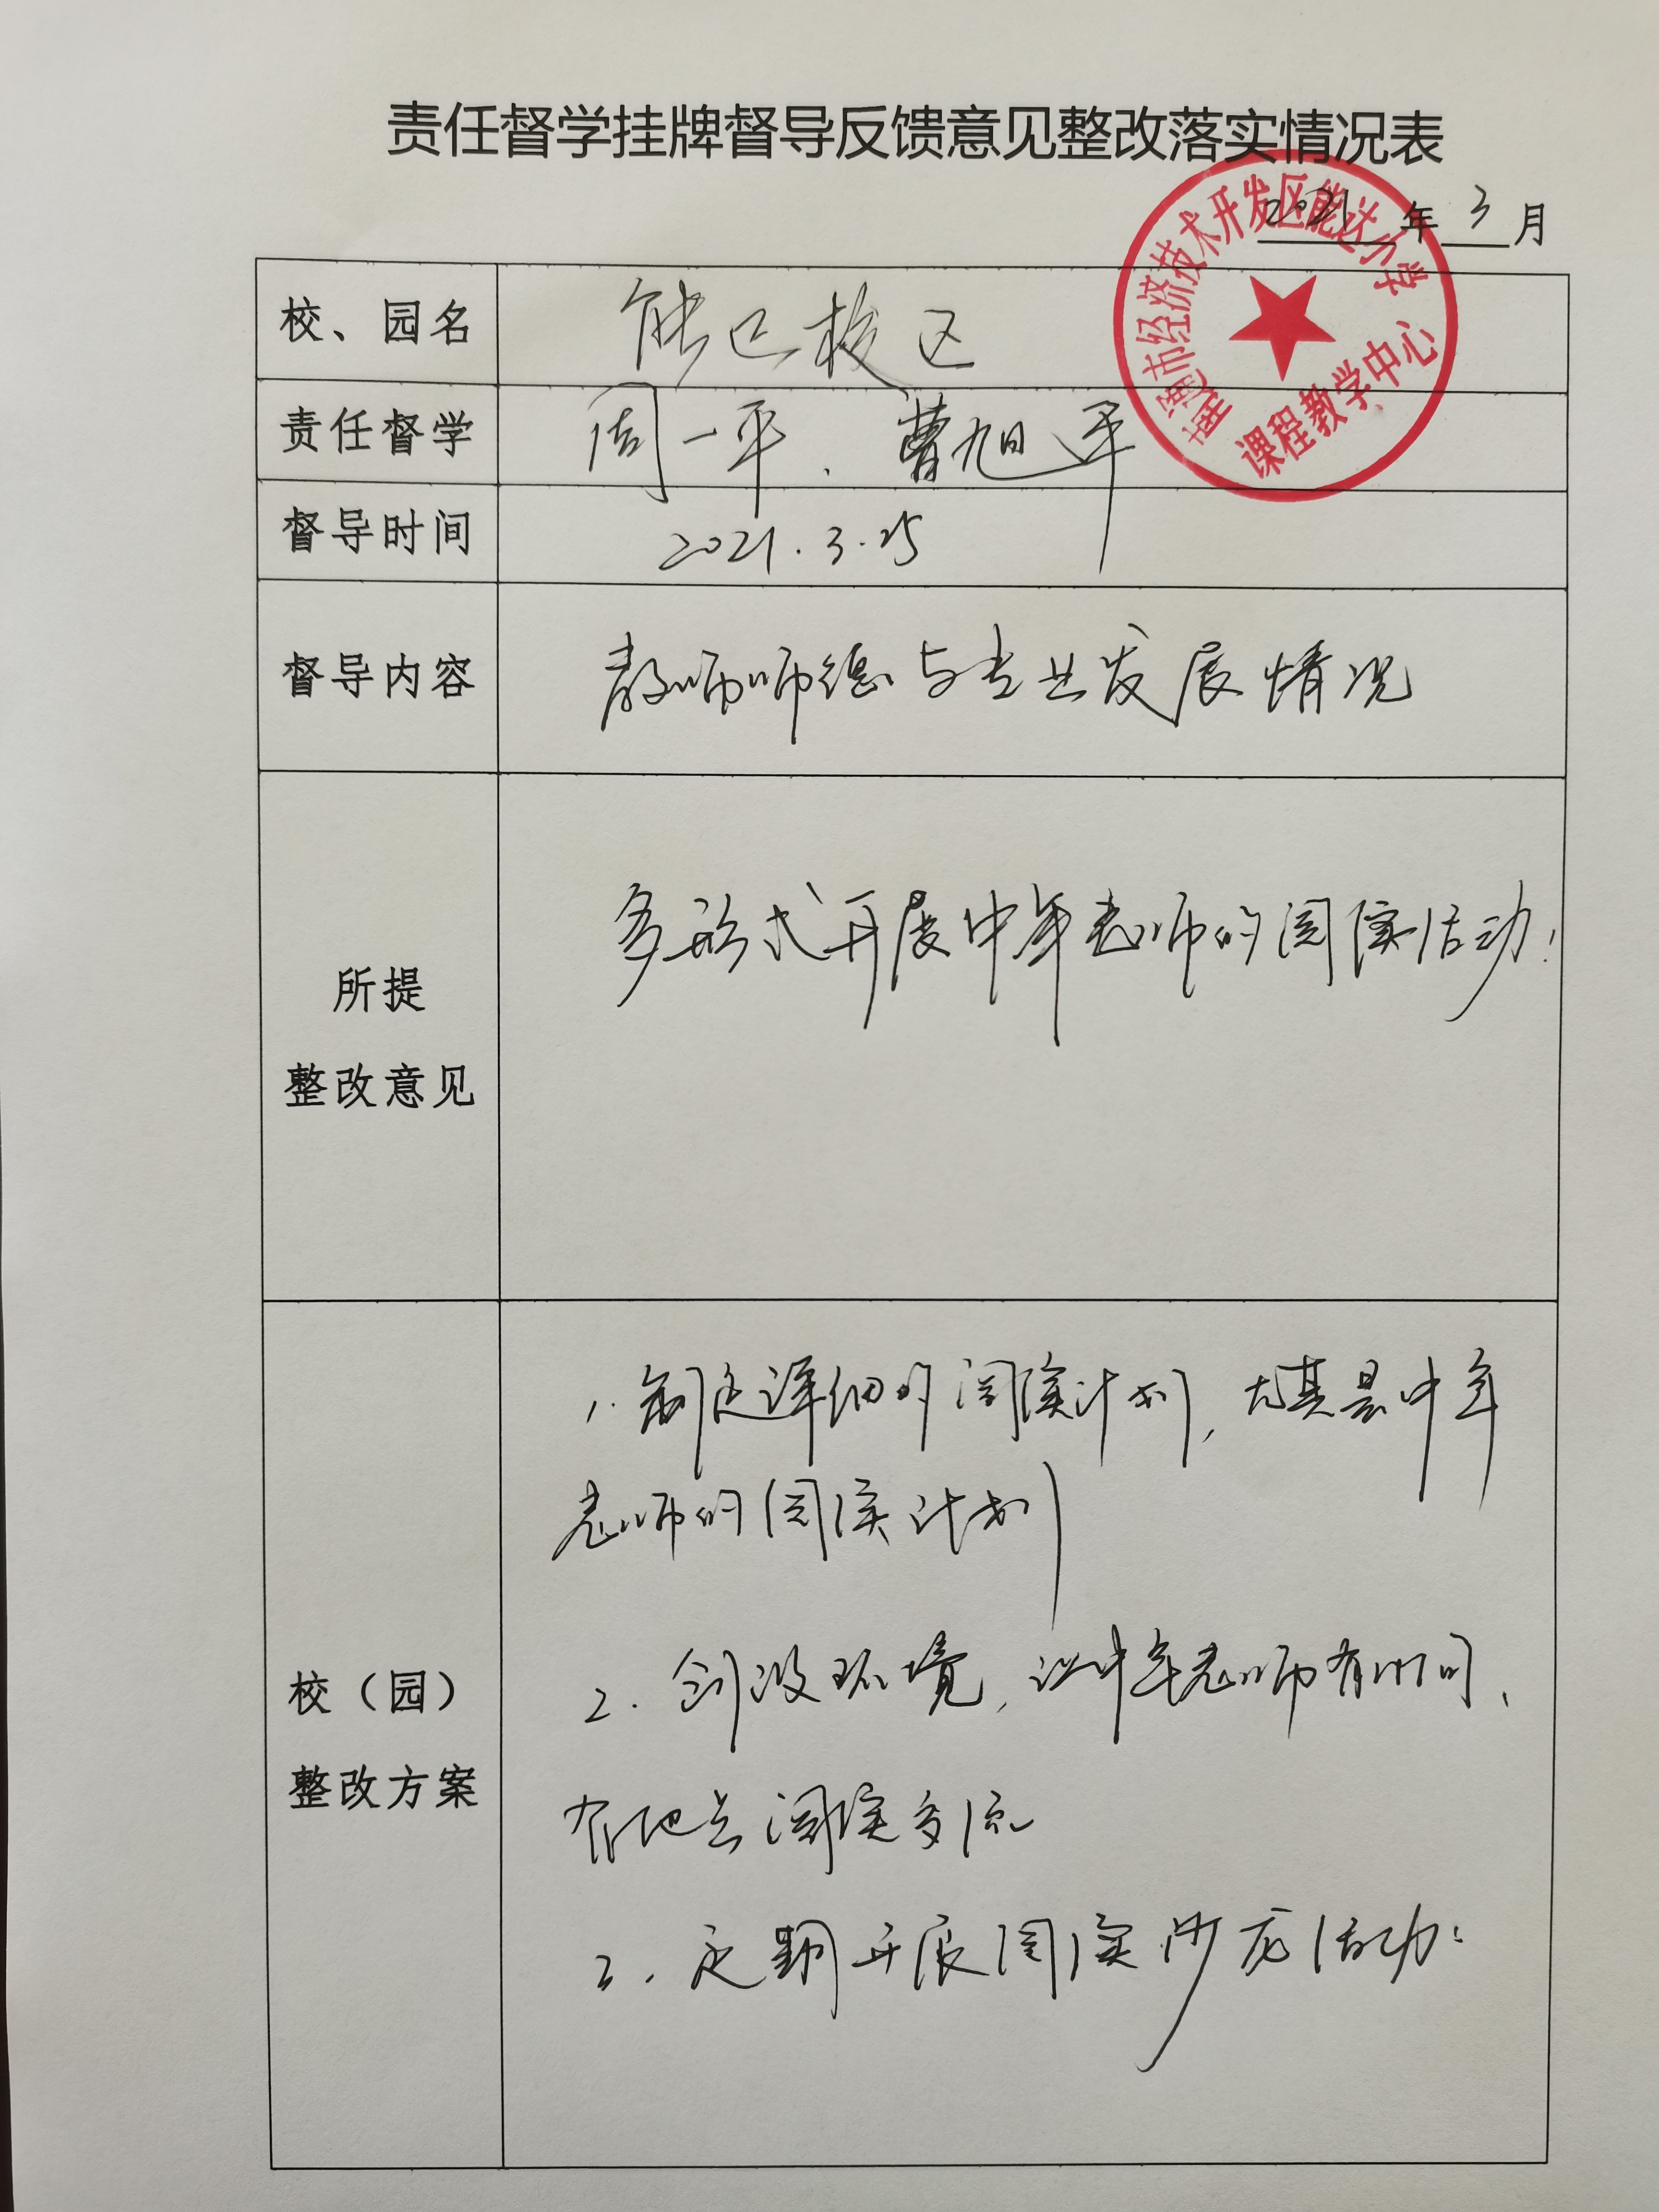 责任督学挂牌督导反馈意见整改落实情况表
2021年3月
南通市经济技术开发区能达小学
课程教学中心
校、园名
能达校区
责任督学
周一平、曹旭平
督导时间
2021.3.25
督导内容
教师师德与专业发展情况
所提
整改意见
多形式开展中年老师的阅读活动!
校（园）
整改方案
1. 制定详细的阅读计划，尤其是中年
老师的阅读计划
2. 创设环境，让中年老师有时间、
有地点阅读交流
3. 定期开展阅读沙龙活动.